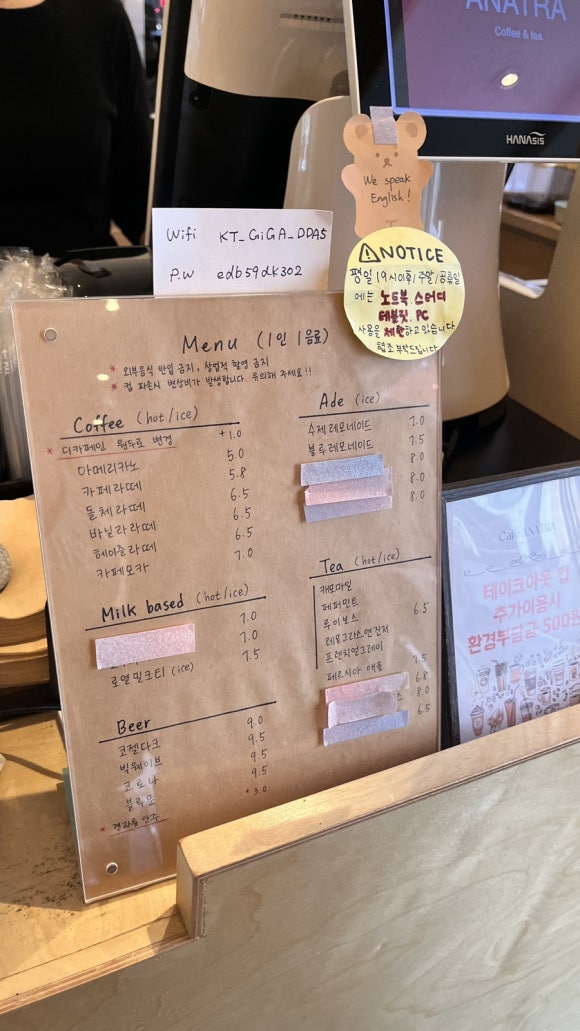 ANATRA
Coffee & tea
HANASIS
We speak
English!
Wifi KT_GiGA_DDA5
P.W edb59dk302
⚠NOTICE
평일 19시이후/주말/공휴일
에는 노트북, 스터디
태블릿, PC
사용을 제한하고있습니다
협조 부탁드립니다
Menu (1인 1음료)
* 외부음식 반입 금지, 상업적 촬영 금지
* 컵 파손시 변상비가 발생합니다. 유의해 주세요!!
Coffee (hot/ice)
* 디카페인 원두로 변경 +1.0
아메리카노 5.0
카페라떼 5.8
돌체라떼 6.5
바닐라라떼 6.5
헤이즐라떼 6.5
카페모카 7.0
Milk based (hot/ice)
7.0
7.0
로열밀크티 (ice) 7.5
Beer
코젤다크 9.0
빅웨이브 9.5
코로나 9.5
블루문 9.5
* 견과류 안주 +3.0
Ade (ice)
수제레모네이드 7.0
블루레모네이드 7.5
8.0
8.0
8.0
Tea (hot/ice)
캐모마일
페퍼민트
루이보스 6.5
레몬그라스앤진저
프렌치얼그레이
페르시아 애플 7.5
6.8
스 8.0
6.5
Cafe ANATRA
테이크아웃 컵
추가이용시
환경부담금 500원